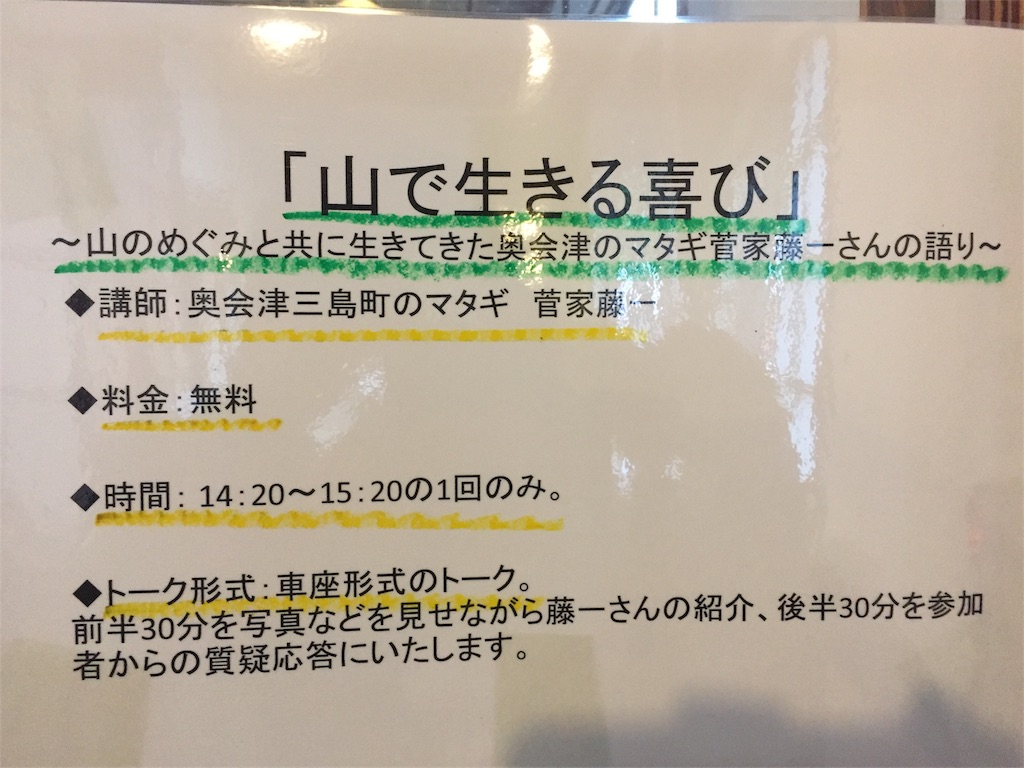 「山で生きる喜び」
～山のめぐみと共に生きてきた奥会津のマタギ菅家藤一さんの語り～
◆講師：奥会津三島町のマタギ　菅家藤一
◆料金：無料
◆時間： 14：20～15：20の1回のみ。
◆トーク形式：車座形式のトーク。
前半30分を写真などを見せながら藤一さんの紹介、後半30分を参加
者からの質疑応答にいたします。